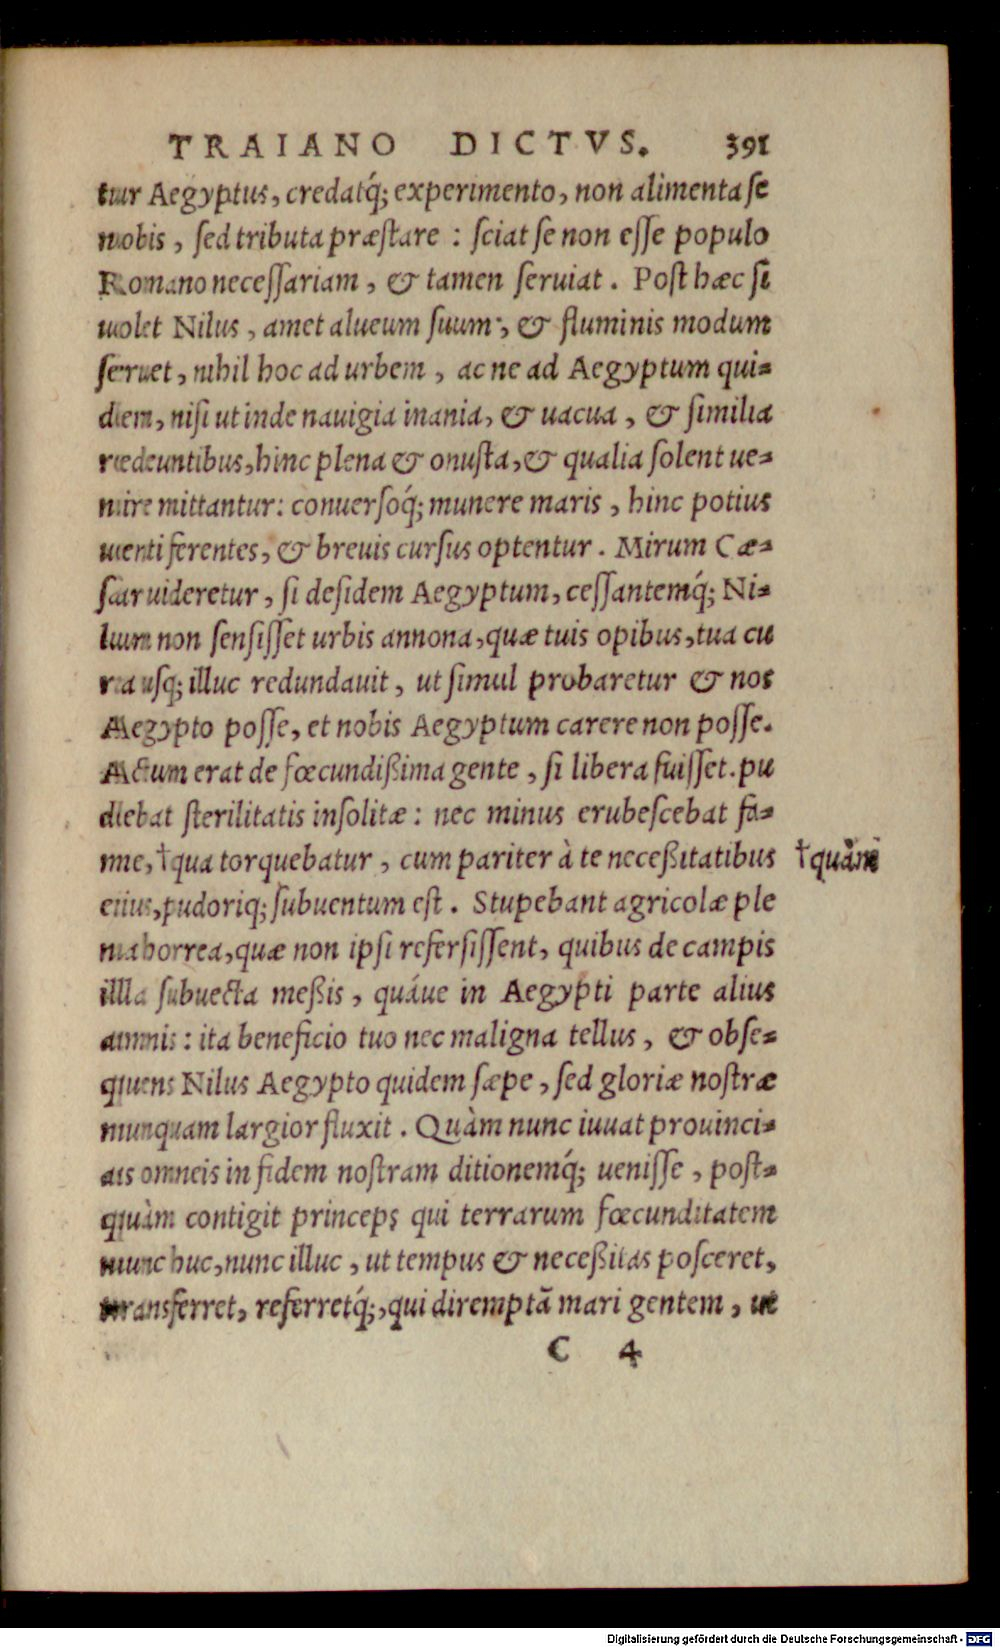 TRAIANO DICTVS. 391
tur Aegyptus, credatq́; experimento, non alimenta se
nobis, sed tributa præstare : sciat se non esse populo
Romano necessariam, & tamen seruiat. Post hæc si
uolet Nilus, amet alueum suum, & fluminis modum
seruet, nihil hoc ad urbem, ac ne ad Aegyptum qui-
dem, nisi ut inde nauigia inania, & uacua, & similia
redeuntibus, hinc plena & onusta, & qualia solent ue-
nire mittantur: conuersoq́; munere maris, hinc potius
uenti ferentes, & breuis cursus optentur. Mirum Cæ-
sar uideretur, si desidem Aegyptum, cessantemq́; Ni-
lum non sensisset urbis annona, quæ tuis opibus, tua cu
ra usq; illuc redundauit, ut simul probaretur & nos
Aegypto posse, et nobis Aegyptum carere non posse.
Actum erat de fœcundißima gente, si libera fuisset. pu
debat sterilitatis insolitæ: nec minus erubescebat fa-
me, †qua torquebatur, cum pariter à te neceßitatibus †quàm
eius, pudoriq; subuentum est. Stupebant agricolæ ple
na horrea, quæ non ipsi refersissent, quibus de campis
illa subuecta meßis, quáue in Aegypti parte alius
amnis: ita beneficio tuo nec maligna tellus, & obse-
quens Nilus Aegypto quidem sæpe, sed gloriæ nostræ
nunquam largior fluxit. Quàm nunc iuuat prouinci-
as omneis in fidem nostram ditionemq́; uenisse, post-
quàm contigit princeps qui terrarum fœcunditatem
nunc huc, nunc illuc, ut tempus & neceßitas posceret,
transferret, referretq́;, qui diremptã mari gentem, ut
C 4
Digitalisierung gefördert durch die Deutsche Forschungsgemeinschaft - DFG